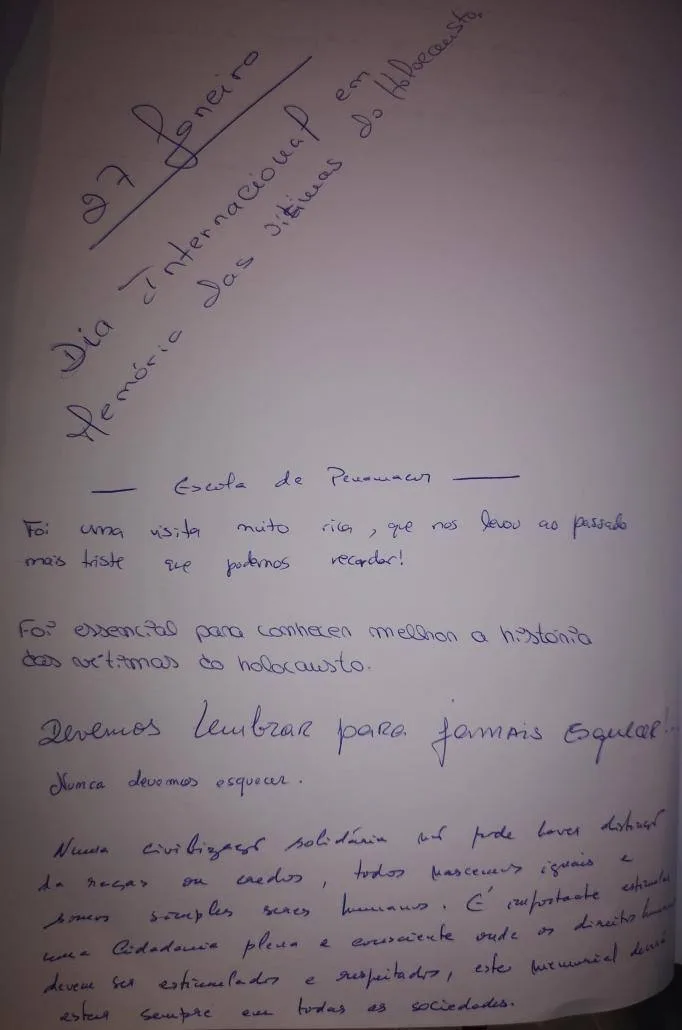 27 Janeiro
Dia Internacional em
Memória das vítimas do Holocausto.
— Escola de Penamacor —
Foi uma visita muito rica, que nos levou ao passado
mais triste que podemos recordar!
Foi essencial para conhecer melhor a história
das vítimas do holocausto.
Devemos lembrar para jamais esquecer!
Nunca devemos esquecer.
Numa civilização solidária não pode haver distinção
de raças ou credos, todos nascemos iguais e
somos simples seres humanos. É importante estimular
uma Cidadania plena e consciente onde os direitos
devem ser estimulados e respeitados, este memorial
estar sempre em todas as sociedades.